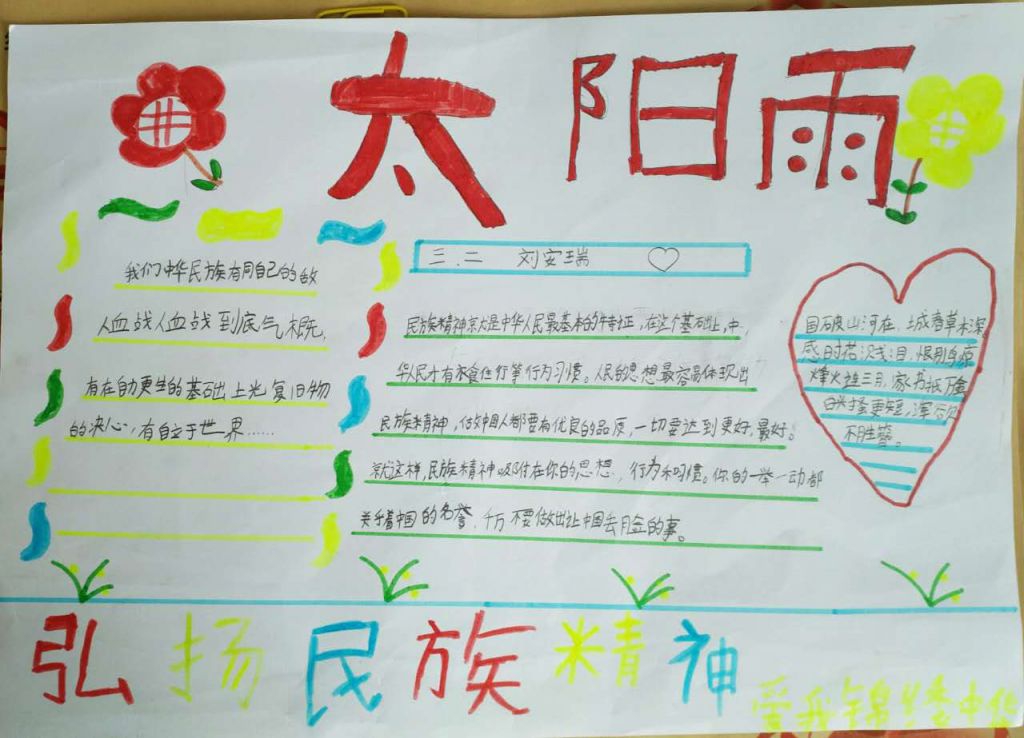 太阳雨
三.二 刘安瑞
我们中华民族有同自己的敌
人血战人血战到底气概,
有在自助更生的基础上光复旧物
的决心,有自立于世界……
民族精神京尤是中华人民最基本的特征,在这个基础上,中
华人民才有衣食住行等行为习惯。人民的思想最容易体现出
民族精神,估如中国人都要有优良的品质,一切要达到更好,最好。
京尤这样,民族精神吸付在你的思想,行为和习惯。你的一举一动都
关乎着中国的名誉,千万不要做出让中国丢月佥的事。
目破山河在,城春草木深
感时花溅泪,恨别鸟惊
烽火连三月,家书抵万金
搔更短,浑
不胜簪。
弘扬民族精神
爱我锦绣中华